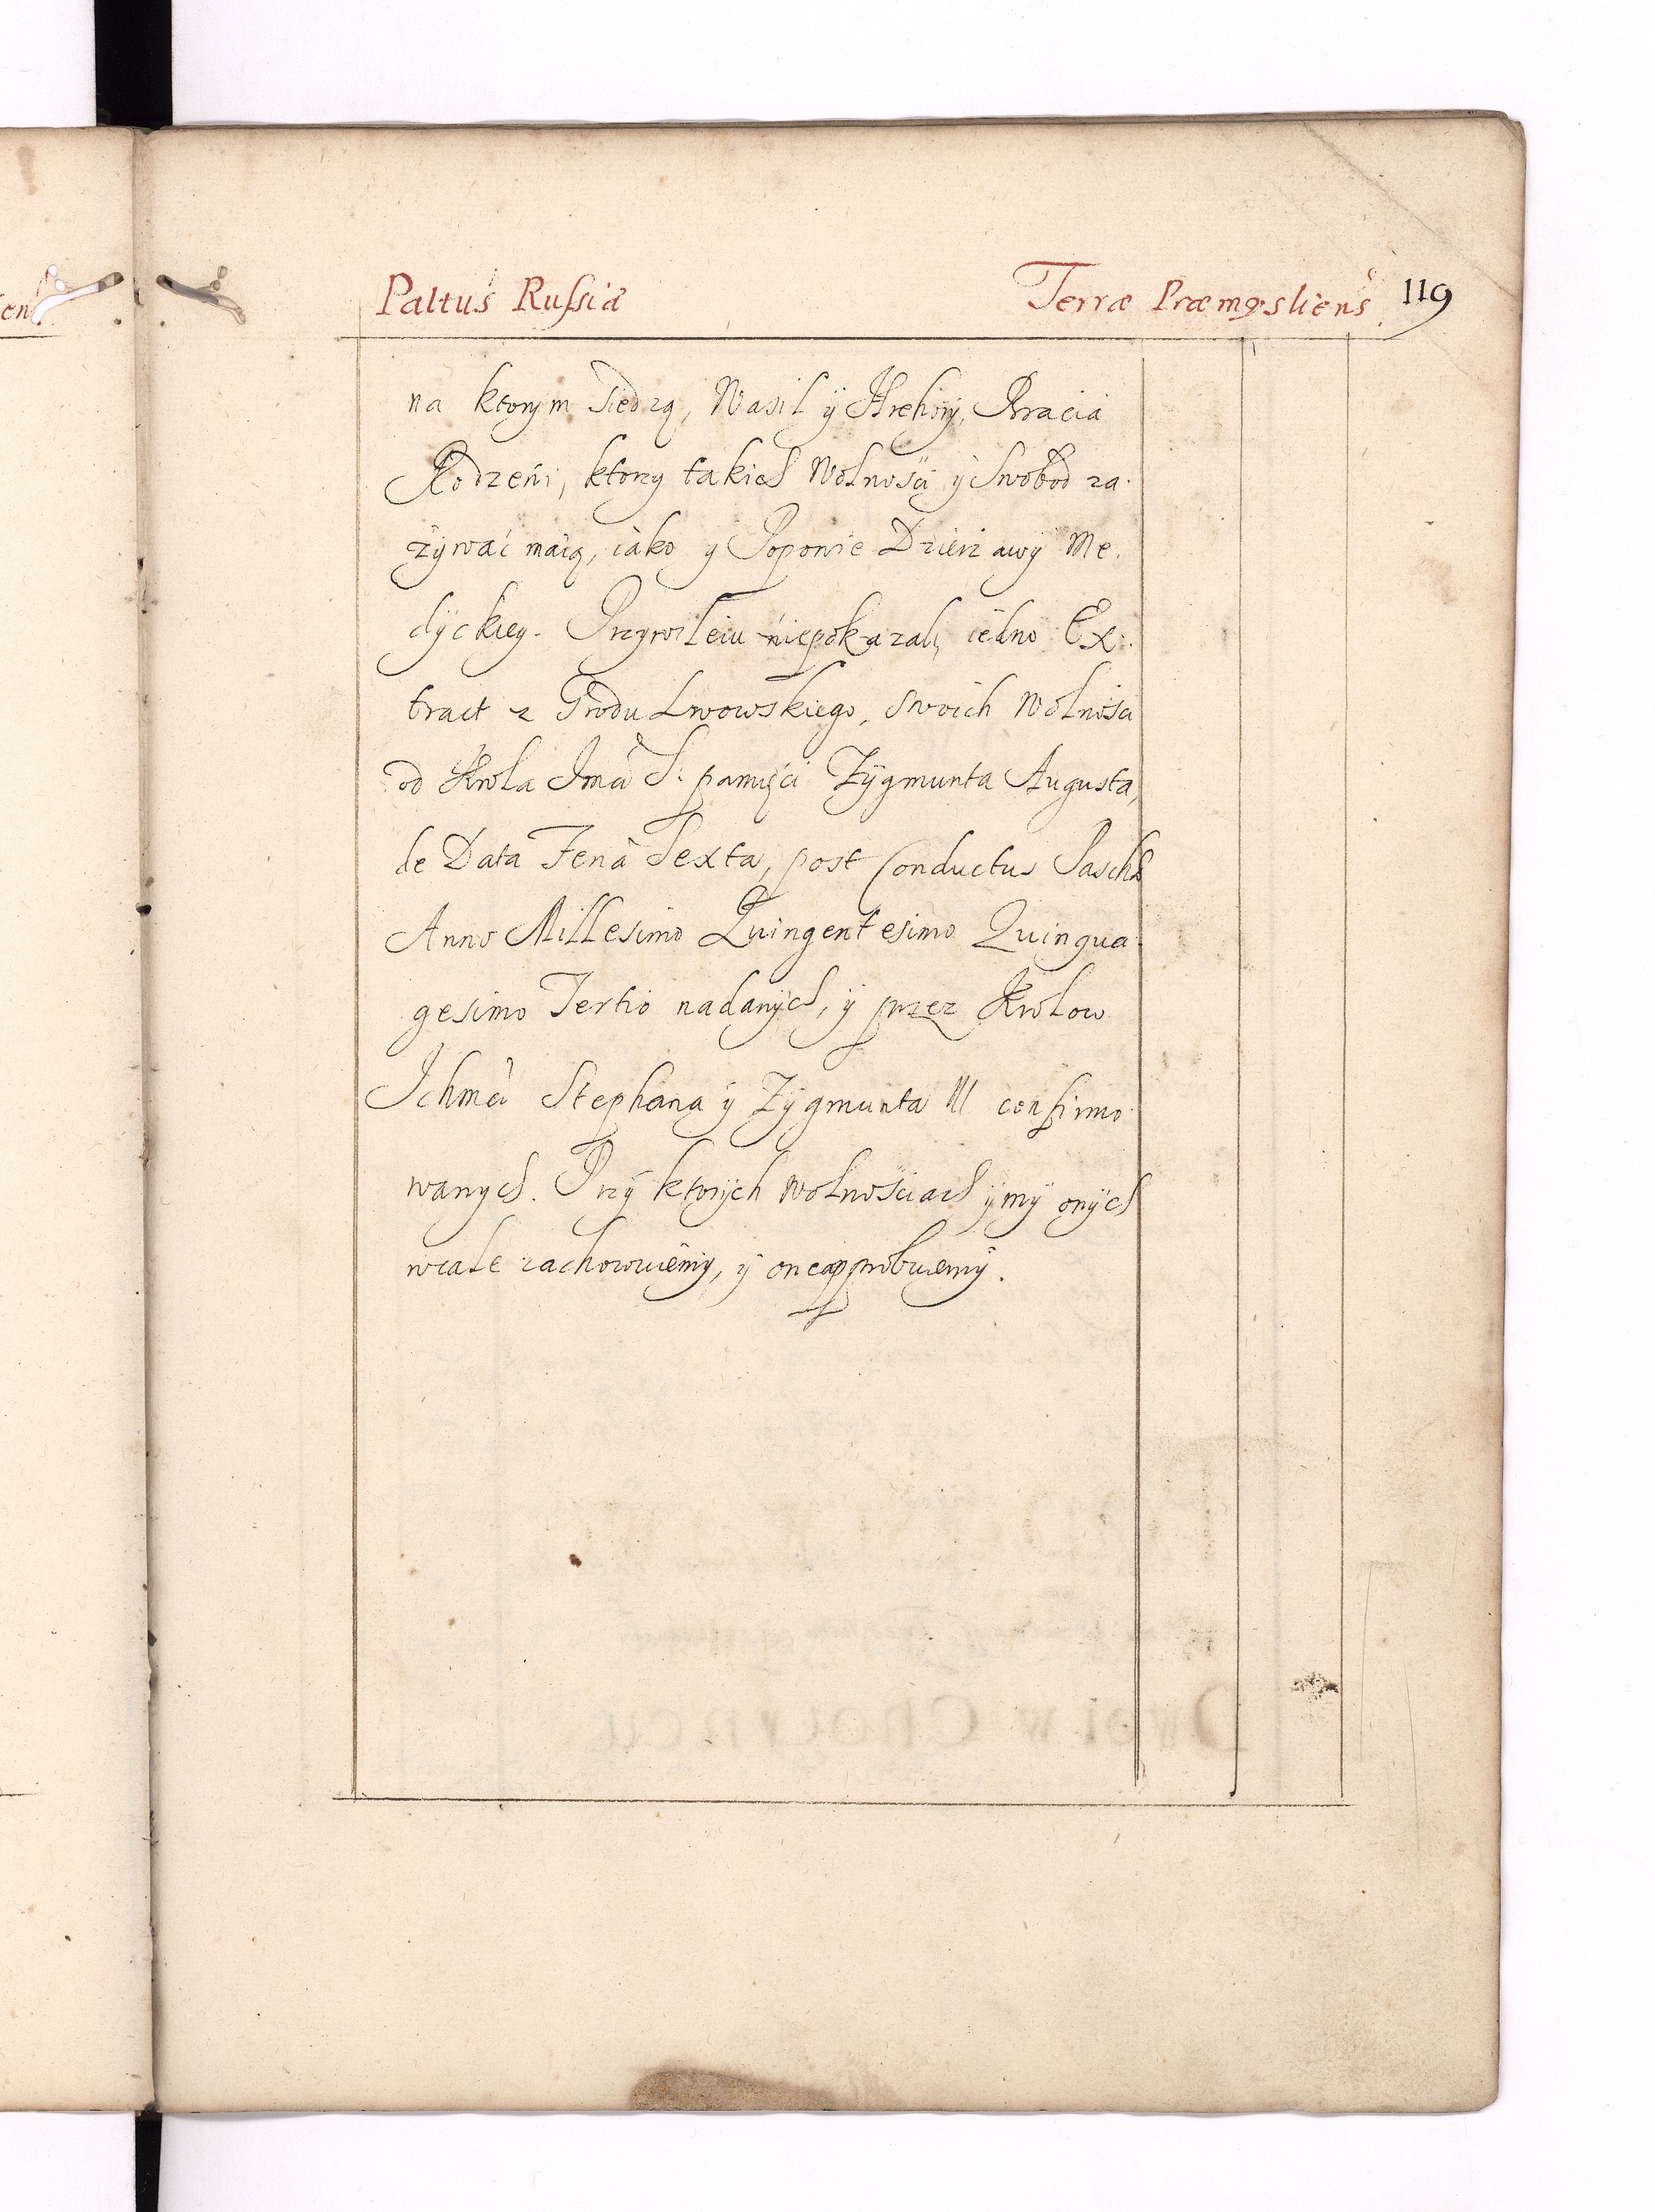 Paltus Russiæ Terræ Præmysliens. 119
na ktorym siedzą, Wasil ÿ Hrehorÿ, Bracia
Rodzeni, ktorzy takich Wolnosci ÿ Swobod za-
żywać maią, iako y Popowie Dzierzawÿ Me-
dÿckiey. Przywileiu niepokazali, iedno Ex-
tract z Grodu Lwowskiego, swoich Wolnosci
od Krola Jmci S. pamięci Zÿgmunta Augusta,
de Data Feria Sexta, post Conductus Paschæ
Anno Millesimo Quingentesimo Quinqua-
gesimo Tertio nadanÿch, ÿ przez Krolow
Ichmci Stephana ÿ Zÿgmunta III confirmo-
wanych. Przÿ ktorÿch wolnosciach ÿ mÿ onÿch
wcale zachowuiemÿ, ÿ one approbuiemÿ.